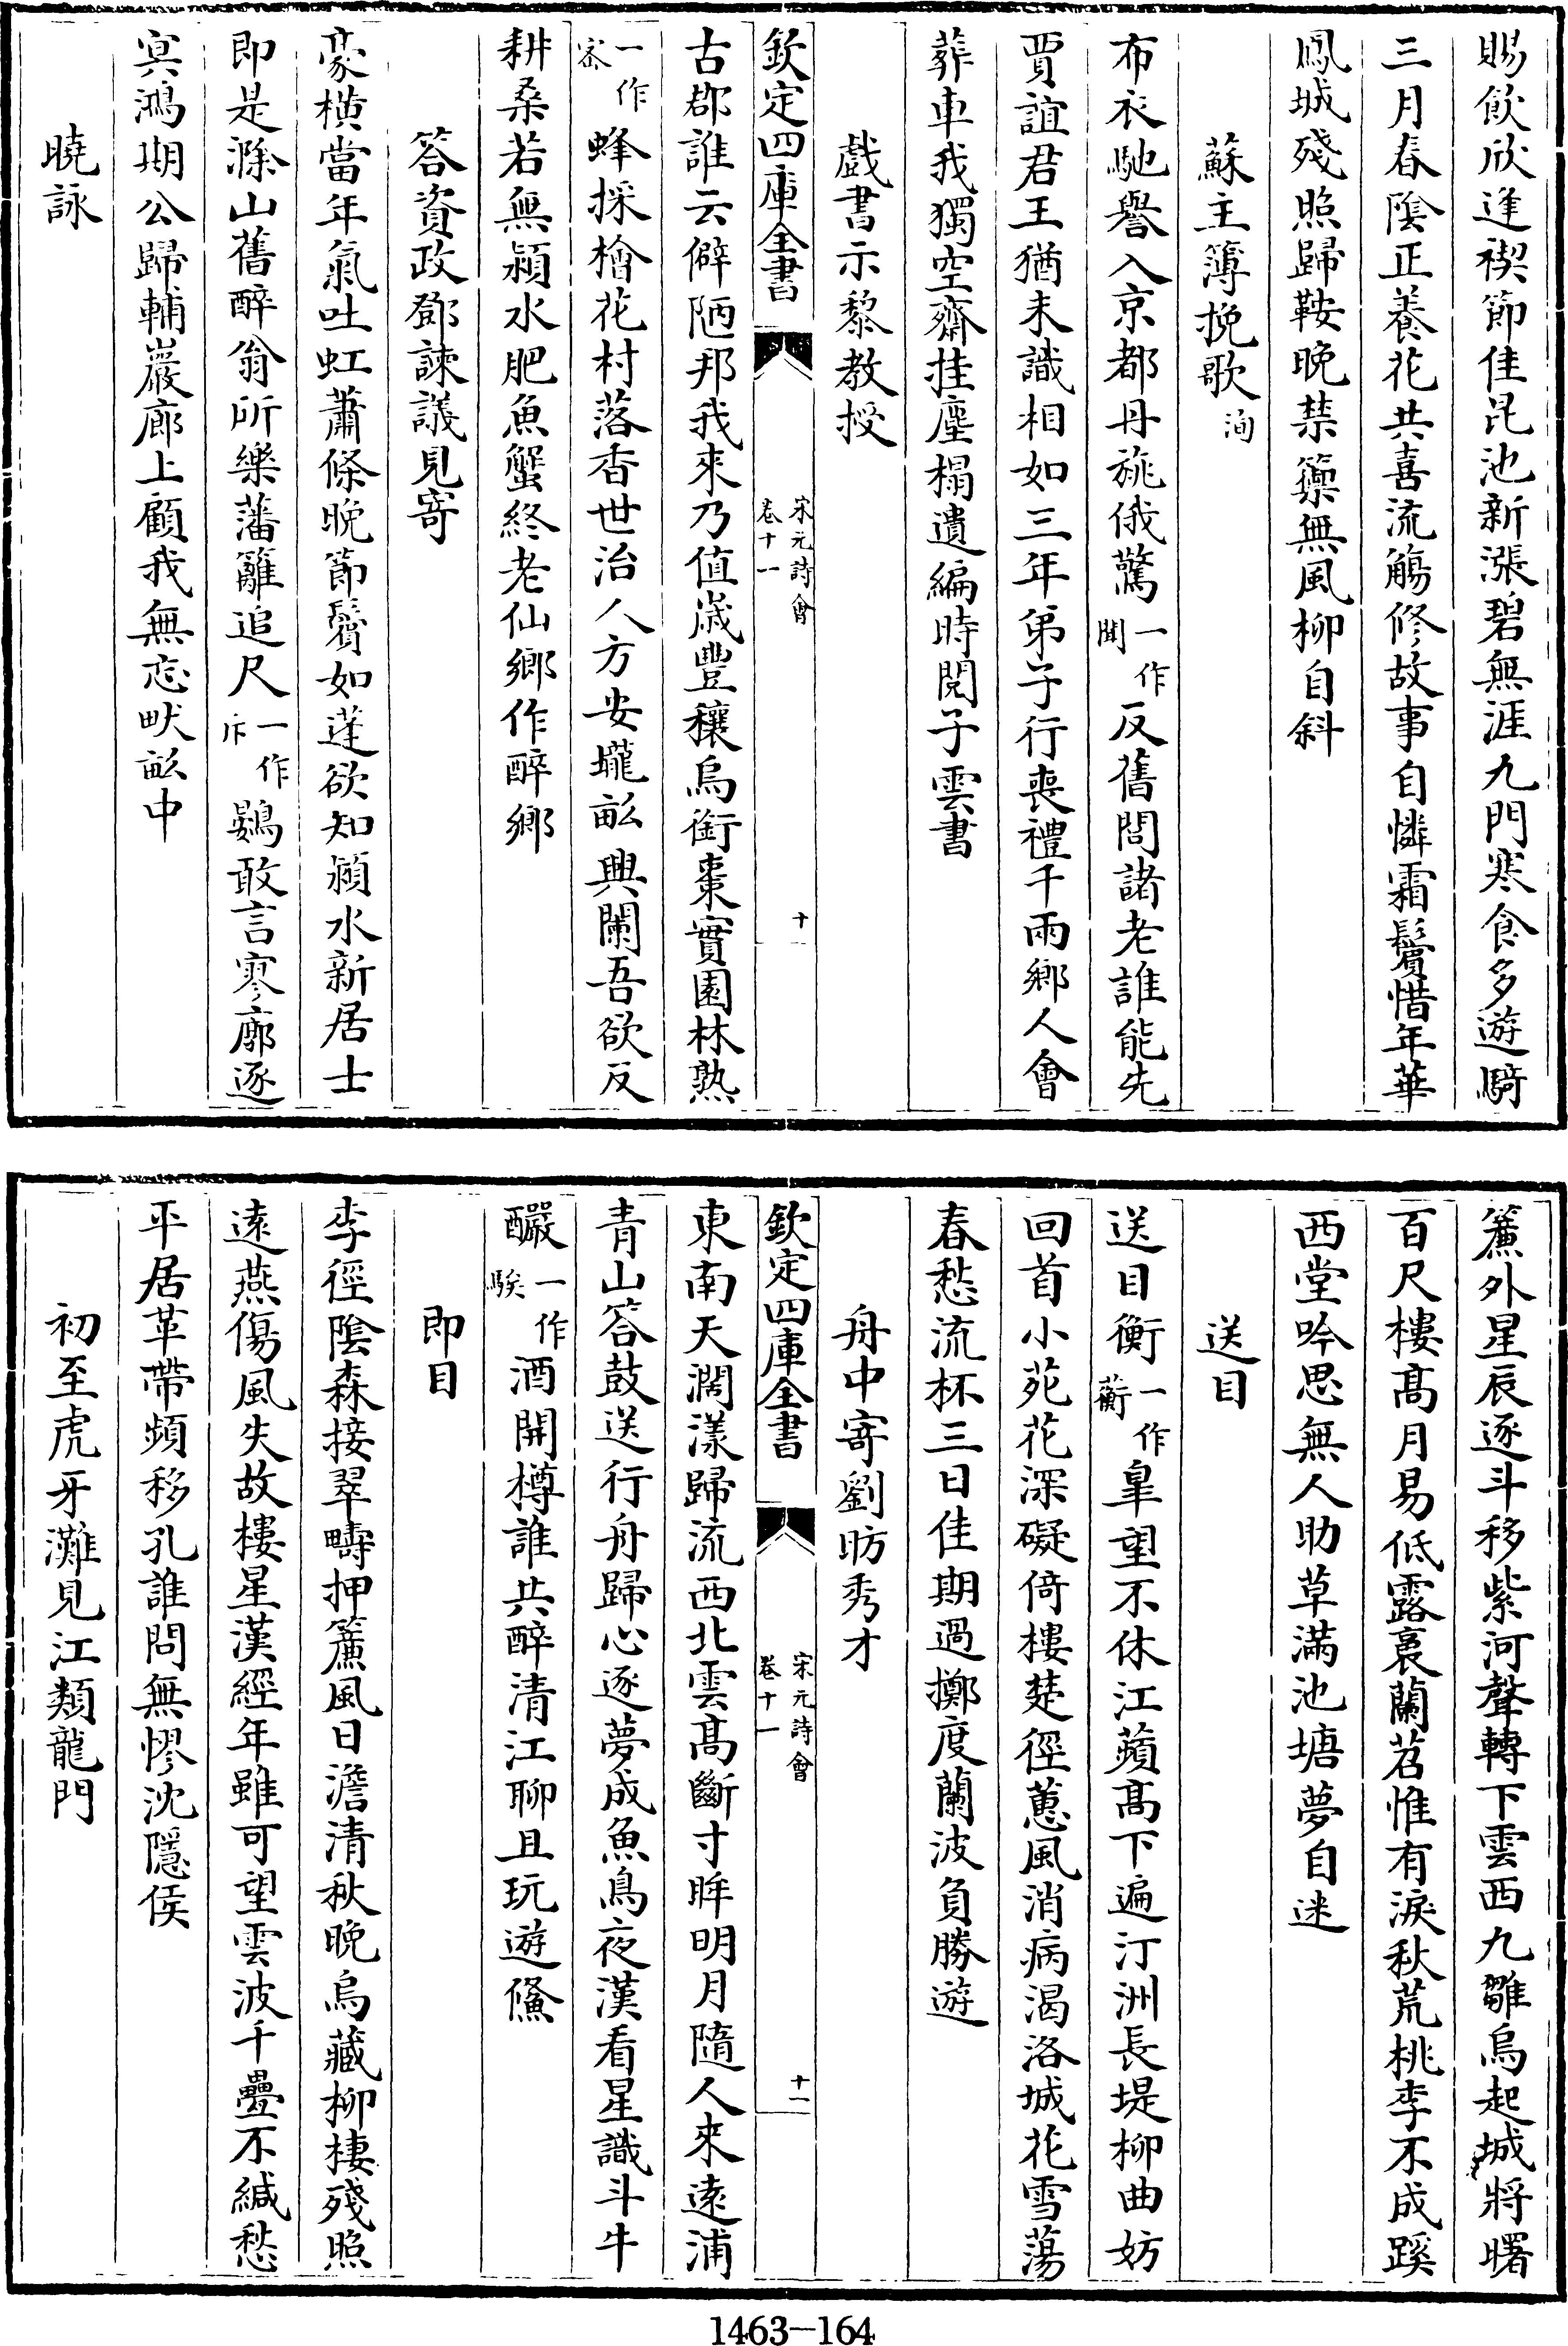 賜飲欣逢禊節佳昆池新漲碧無涯九門寒食多遊騎
三月春陰正養花共喜流觴修故事自憐霜鬢惜年華
鳳城殘照歸鞍晚禁籞無風柳自斜
蘇主簿挽歌洵
布衣馳譽入京都丹旐俄驚一作聞反舊閭諸老誰能先
賈誼君王猶未識相如三年弟子行喪禮千兩鄉人會
葬車我獨空齋挂塵榻遺編時閱子雲書
戲書示黎教授
欽定四庫全書
宋元詩會
卷十一
十
古郡誰云僻陋邦我來乃值歲豐穰烏銜棗實園林熟
一作密蜂採檜花村落香世治人方安壠畝興闌吾欲反
耕桑若無潁水肥魚蟹終老仙鄉作醉鄉
答資政鄧諫議見寄
豪橫當年氣吐虹蕭條晚節鬢如蓬欲知潁水新居士
即是滁山舊醉翁所樂藩籬追尺一作斥鷃敢言寥廓逐
冥鴻期公歸輔巖廊上顧我無忘畎畝中
曉詠
簾外星辰逐斗移紫河聲轉下雲西九雛烏起城將曙
百尺樓高月易低露裛蘭苕惟有淚秋荒桃李不成蹊
西堂吟思無人助草滿池塘夢自迷
送目
送目衡一作蘅臯望不休江蘋高下遍汀洲長堤柳曲妨
回首小苑花深礙倚樓楚徑蕙風消病渴洛城花雪蕩
春愁流杯三日佳期過擲度蘭波負勝遊
舟中寄劉昉秀才
欽定四庫全書
宋元詩會
卷十一
十一
東南天濶漾歸流西北雲高斷寸眸明月隨人來遠浦
青山答鼓送行舟歸心逐夢成魚鳥夜漢看星識斗牛
釅一作騃酒開樽誰共醉清江聊且玩遊鯈
即目
李徑陰森接翠疇押簾風日澹清秋晚烏藏柳棲殘照
遠燕傷風失故樓星漢經年雖可望雲波千疊不緘愁
平居革帶頻移孔誰問無憀沈隱侯
初至虎牙灘見江類龍門
1463-164